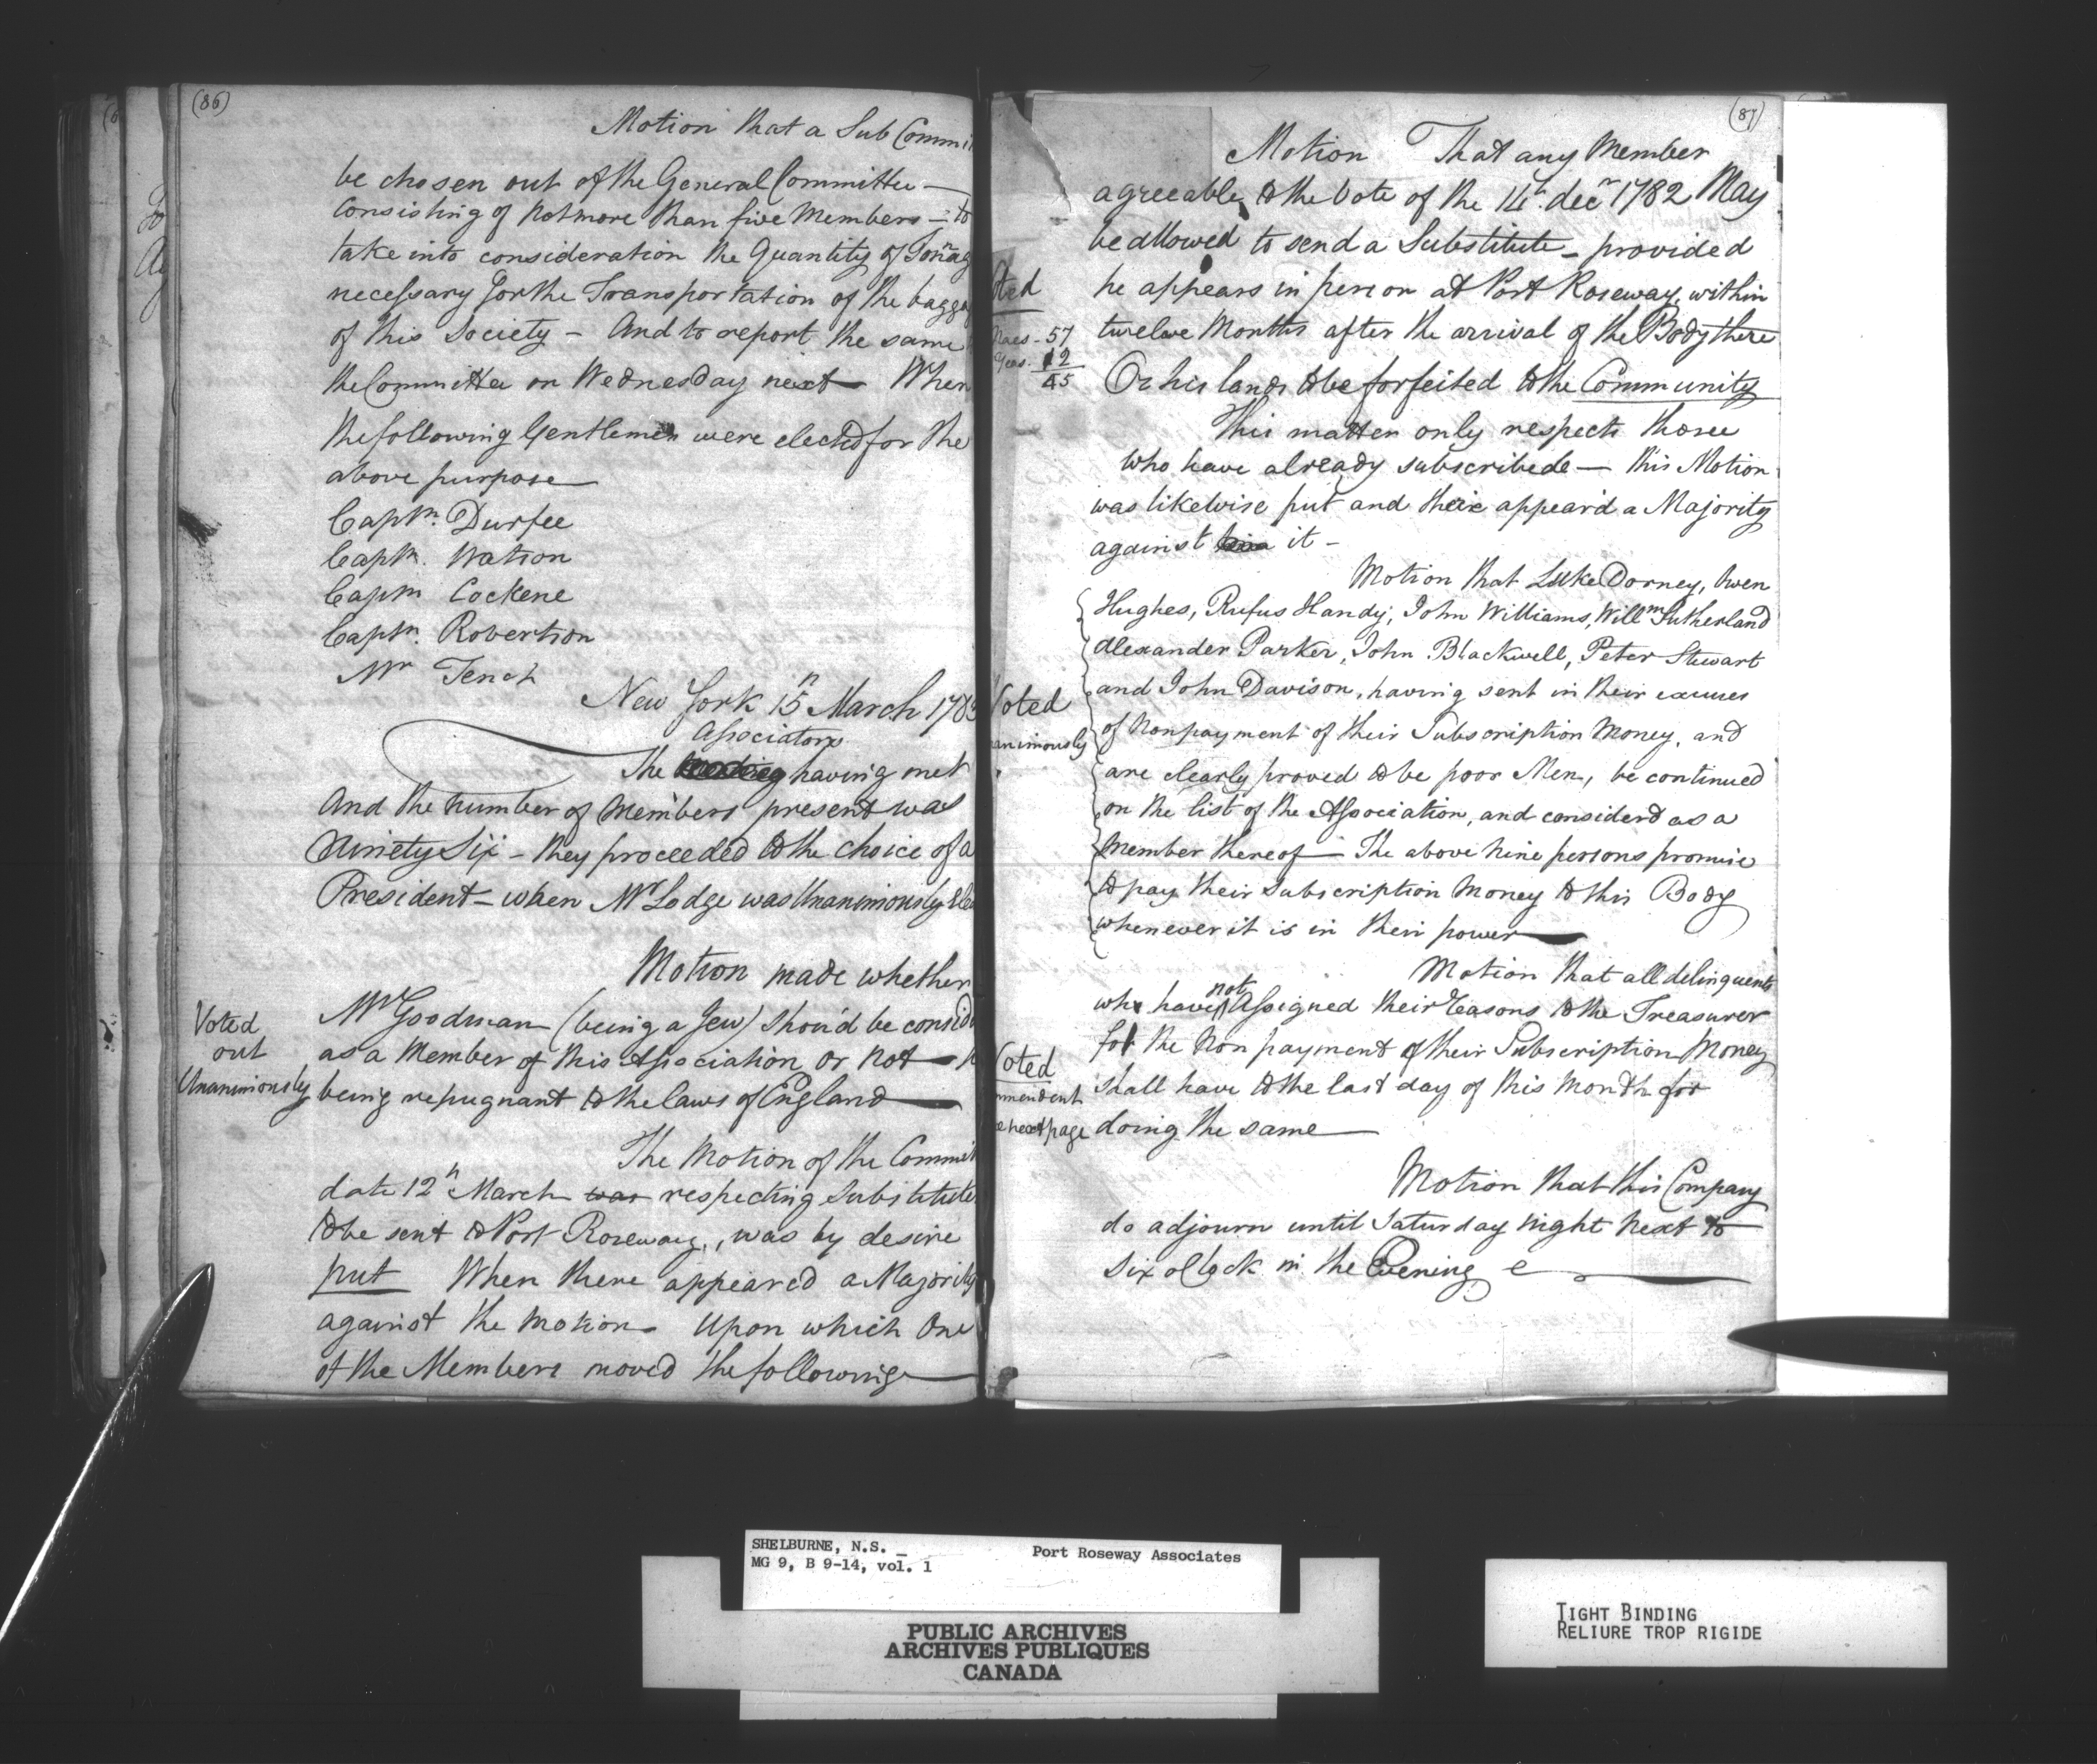 (86)
Motion that a Sub Commi
be chosen out of the General Committee —
Consisting of not more than five Members — to
take into consideration the Quantity of Tonnag
necessary for the Transportation of the bagga
of this Society — And to report the same
the Committee on Wednesday next — When
the following Gentlemen were elected for the
above purpose —
Captn. Durfee
Captn. Watson
Captn Cockene
Captn. Robertson
Mr Tench
New York 15th March 1783
Associators
The having met
And the number of Members present was
Ninety Six — they proceeded to the choice of a
President — when Mr Lodge was Unanimously Ele
Motion made whether
Mr Goodman (being a Jew) shou'd be consid
as a Member of this Association or not —
being repugnant to the laws of England —
Voted
out
Unanimously
The Motion of the Commit
date 12th March was respecting Substitute
to be sent to Port Roseway, was by desire
put When there appeared a Majority
against the motion — Upon which One
of the Members moved the following —
(87)
Motion That any Member
agreeable to the Vote of the 14th decr 1782 May
be allowed to send a Substitute — provided
he appears in person at Port Roseway, within
twelve Months after the arrival of the Body there
Or his lands to be forfeited to the Community
oted
Naes - 57
Yeas - 12
45
This matter only respects those
who have already subscribede — this Motion
was likewise put and their appear'd a Majority
against it —
Motion that Luke Dorney, Owen
Hughes, Rufus Handy, John Williams, Willm Sutherland
Alexander Parker, John Blackwell, Peter Stewart
and John Davison, having sent in their excuses
of Nonpayment of their Subscription Money, and
are clearly proved to be poor Men, be continued
on the list of the Association, and considerd as a
Member thereof — The above Nine persons promise
to pay their Subscription Money to this Body
whenever it is in their power —
Voted
animously
Motion that all delinquents
who have not Assigned their reasons to the Treasurer
for the Non payment of their Subscription Money
shall have to the last day of this Month for
doing the same —
Voted
mmendent
e next page
Motion that this Company
do adjourn until Saturday night next to
six oClock in the Evening
SHELBURNE, N.S. _
MG 9, B 9-14, vol. 1
Port Roseway Associates
PUBLIC ARCHIVES
ARCHIVES PUBLIQUES
CANADA
TIGHT BINDING
RELIURE TROP RIGIDE